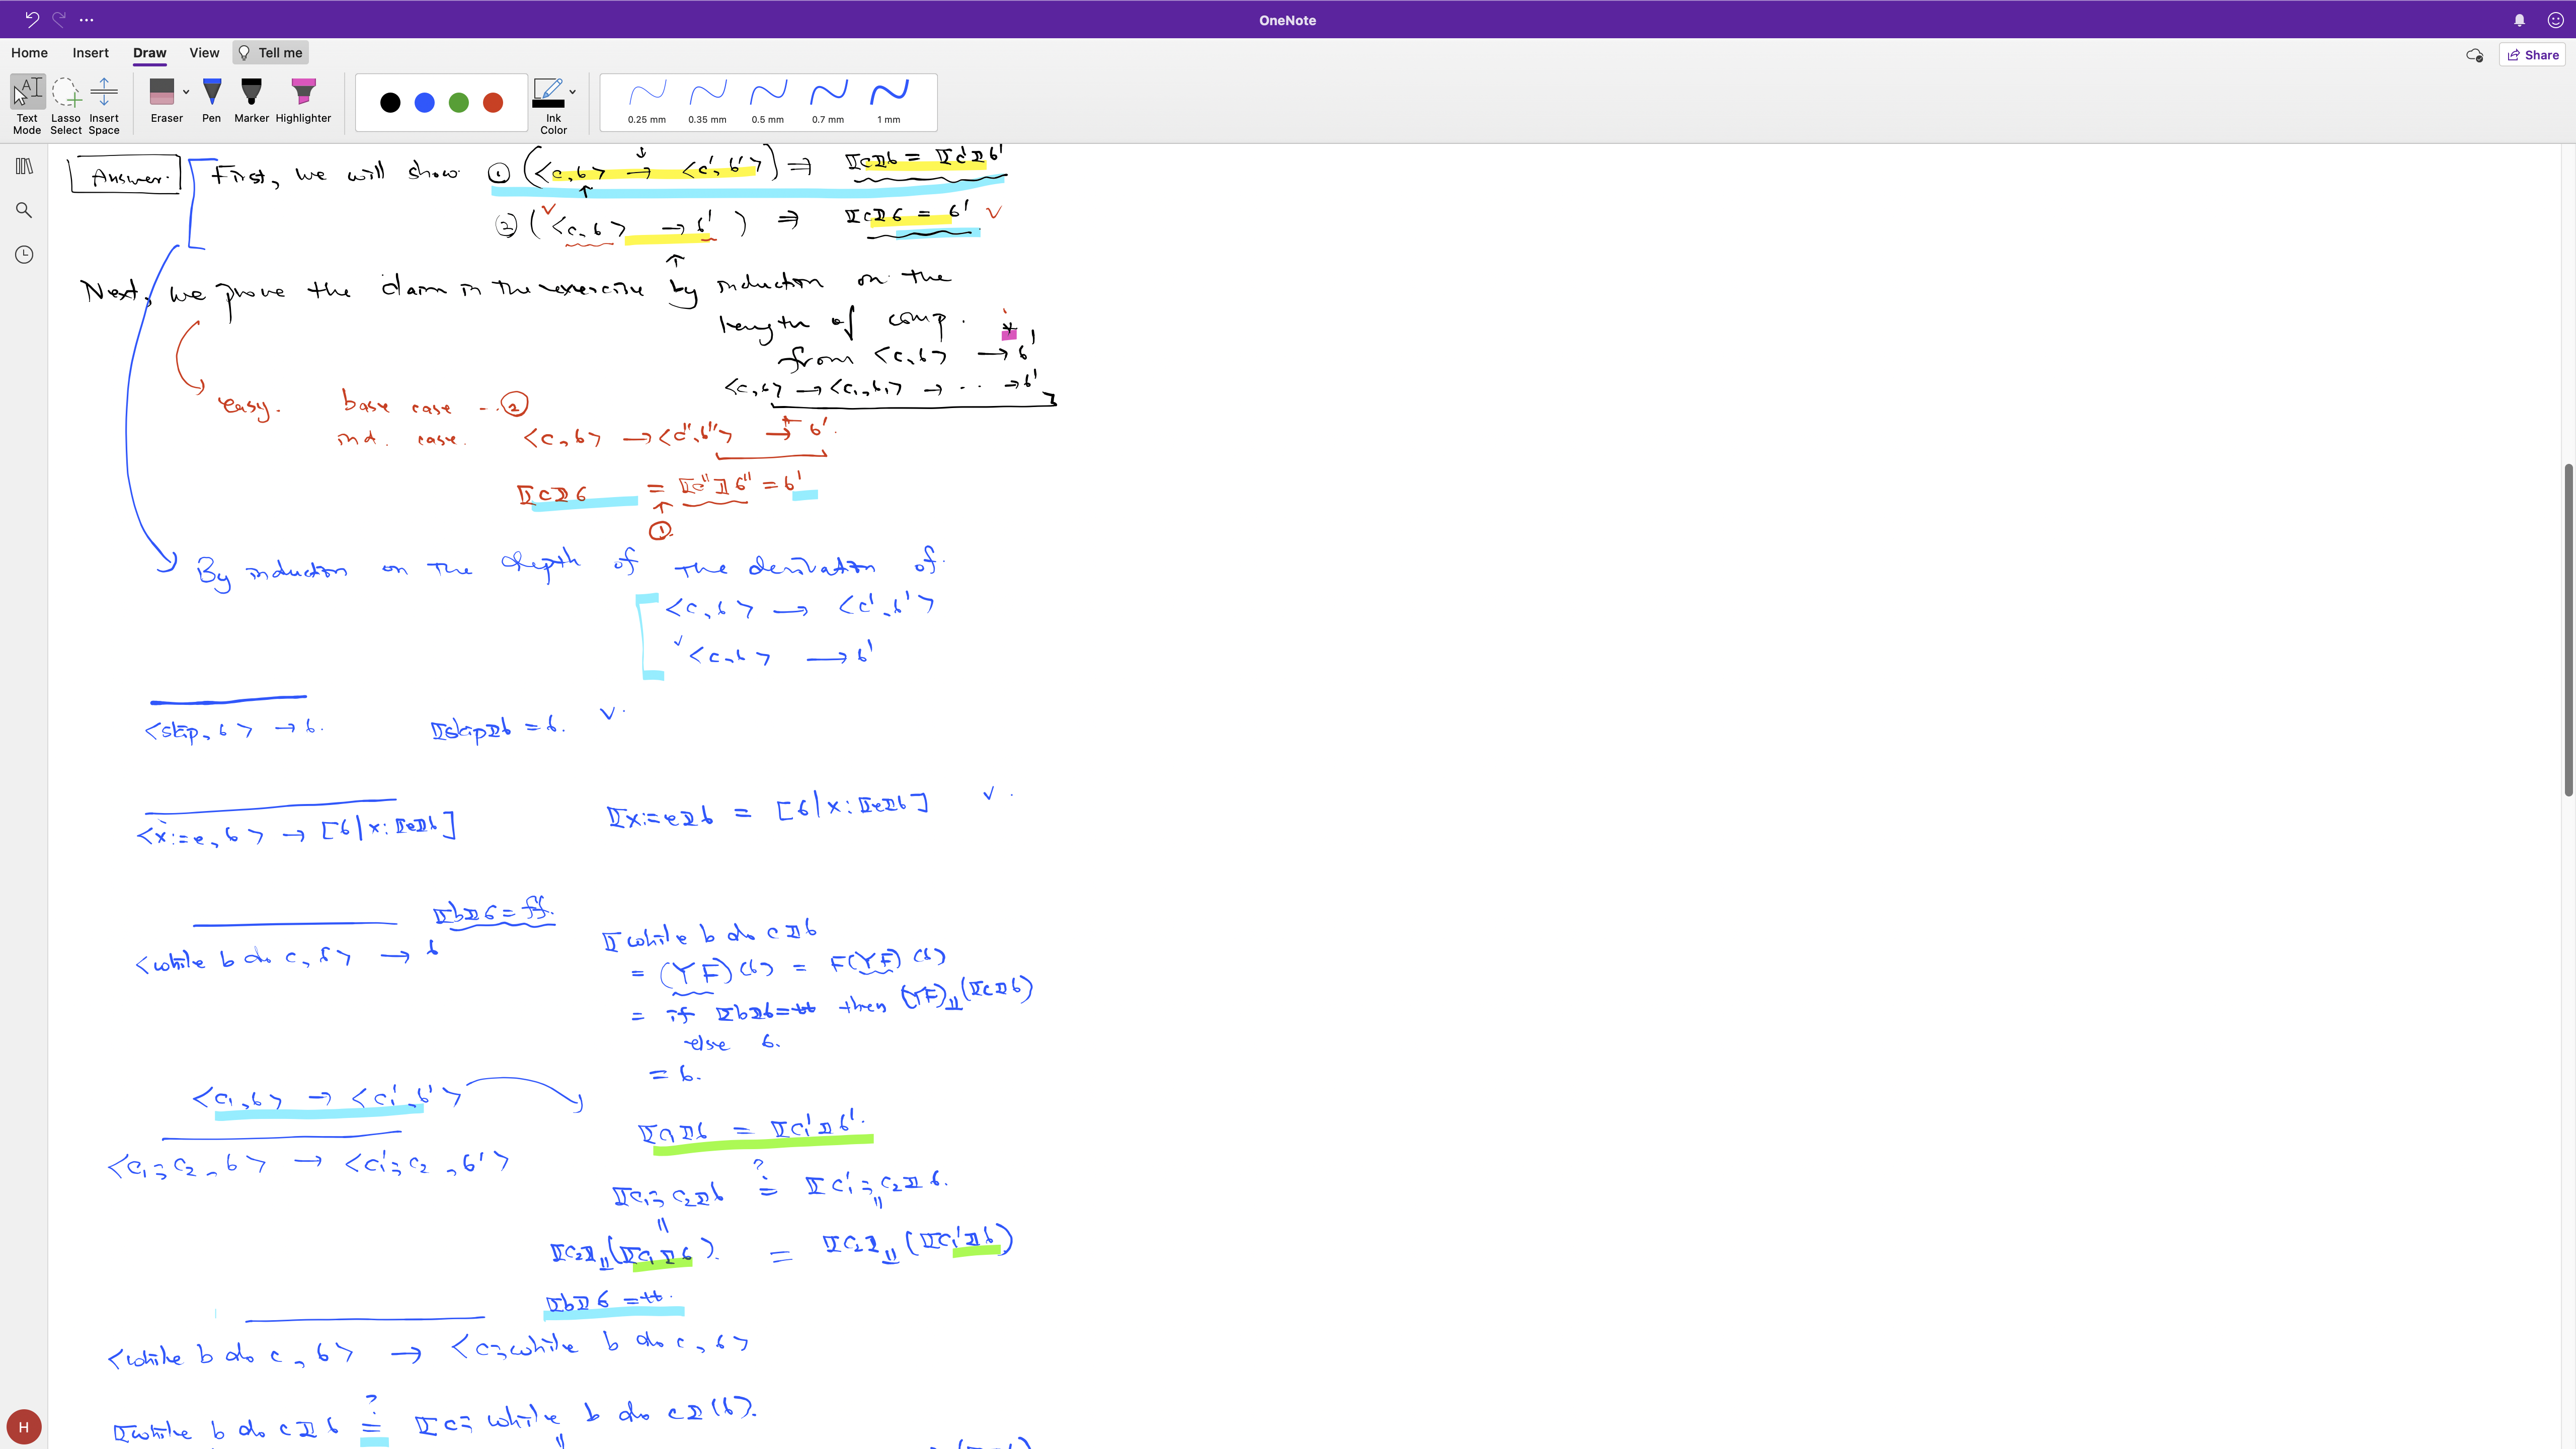 OneNote
Home Insert Draw View Tell me
Share
Text Mode Lasso Select Insert Space Eraser Pen Marker Highlighter Ink Color 0.25 mm 0.35 mm 0.5 mm 0.7 mm 1 mm
Answer. First, we will show ① (<c,σ> → <c',σ'>) ⇒ ⟦c⟧σ = ⟦c'⟧σ'
② (<c,σ> → σ') ⇒ ⟦c⟧σ = σ'
Next, we prove the claim in the exercise by induction on the
length of comp.
from <c,σ> →* σ'
<c,σ> → <c₁,σ₁> → ·· → σ'
easy. base case -- ②
ind. case. <c,σ> → <c'',σ''> →* σ'.
⟦c⟧σ = ⟦c''⟧σ'' = σ'
①
By induction on the depth of the derivation of.
<c,σ> → <c',σ'>
<c,σ> → σ'
<skip,σ> → σ. ⟦skip⟧σ = σ. ✓.
<x:=e,σ> → [σ|x:⟦e⟧σ] ⟦x:=e⟧σ = [σ|x:⟦e⟧σ] ✓.
⟦b⟧σ = ff.
<while b do c,σ> → σ
⟦while b do c⟧σ
= (YF)(σ) = F(YF)(σ)
= if ⟦b⟧σ=tt then (YF)⊥⊥(⟦c⟧σ)
else σ.
= σ.
<c₁,σ> → <c₁',σ'>
<c₁;c₂,σ> → <c₁';c₂,σ'>
⟦c₁⟧σ = ⟦c₁'⟧σ'.
⟦c₁;c₂⟧σ ≟ ⟦c₁';c₂⟧σ.
⟦c₂⟧⊥⊥(⟦c₁⟧σ). = ⟦c₂⟧⊥⊥(⟦c₁'⟧σ)
⟦b⟧σ = tt.
<while b do c,σ> → <c;while b do c,σ>
⟦while b do c⟧σ ≟ ⟦c; while b do c⟧(σ).
H